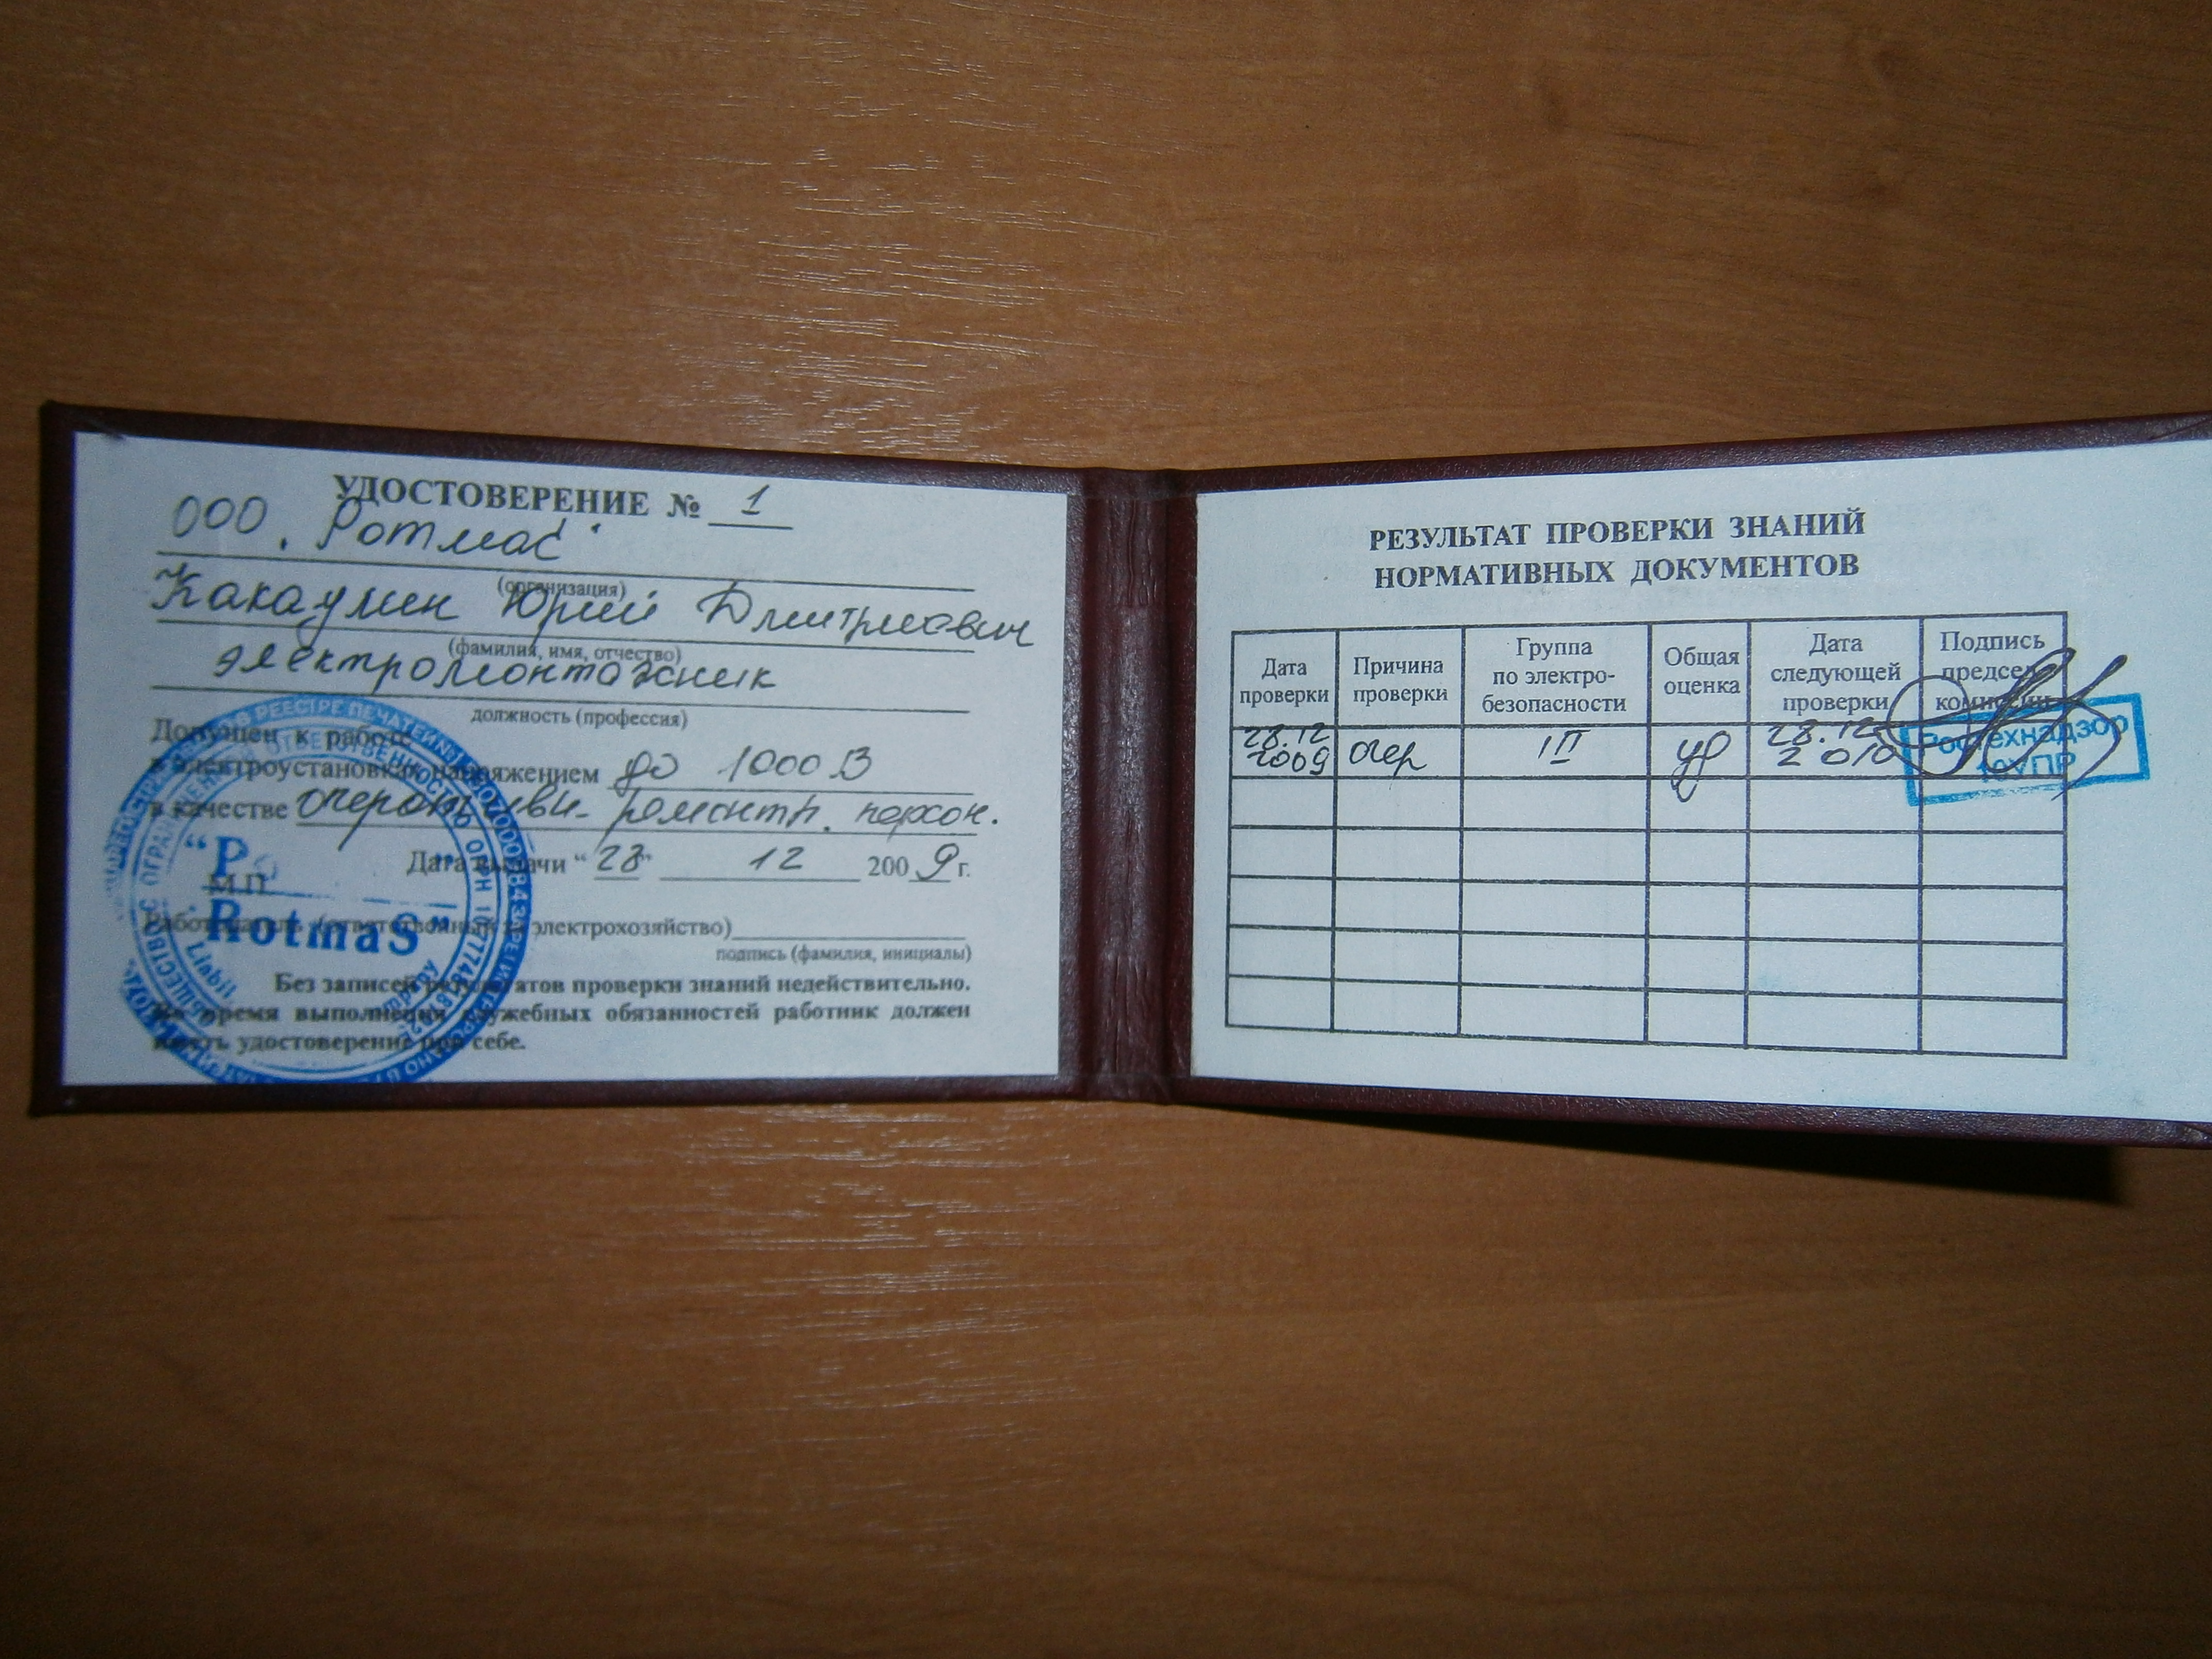 УДОСТОВЕРЕНИЕ № 1
ООО "Ротмас"
(организация)
Какаулин Юрий Дмитриевич
(фамилия, имя, отчество)
электромонтажник
должность (профессия)
Допущен к работе
в электроустановках напряжением до 1000 В
в качестве оперативн- ремонтн. персон.
Дата выдачи "28" 12 2009 г.
М.П.
RotmaS"
Работодатель (ответственный за электрохозяйство)
подпись (фамилия, инициалы)
Без записей результатов проверки знаний недействительно.
Во время выполнения служебных обязанностей работник должен
иметь удостоверение при себе.
РЕЗУЛЬТАТ ПРОВЕРКИ ЗНАНИЙ
НОРМАТИВНЫХ ДОКУМЕНТОВ
Дата проверки
Причина проверки
Группа по электро-безопасности
Общая оценка
Дата следующей проверки
Подпись председ. комиссии
28.12 2009
очер
III
уд
28.12 2010
Ростехнадзор
МТУПР